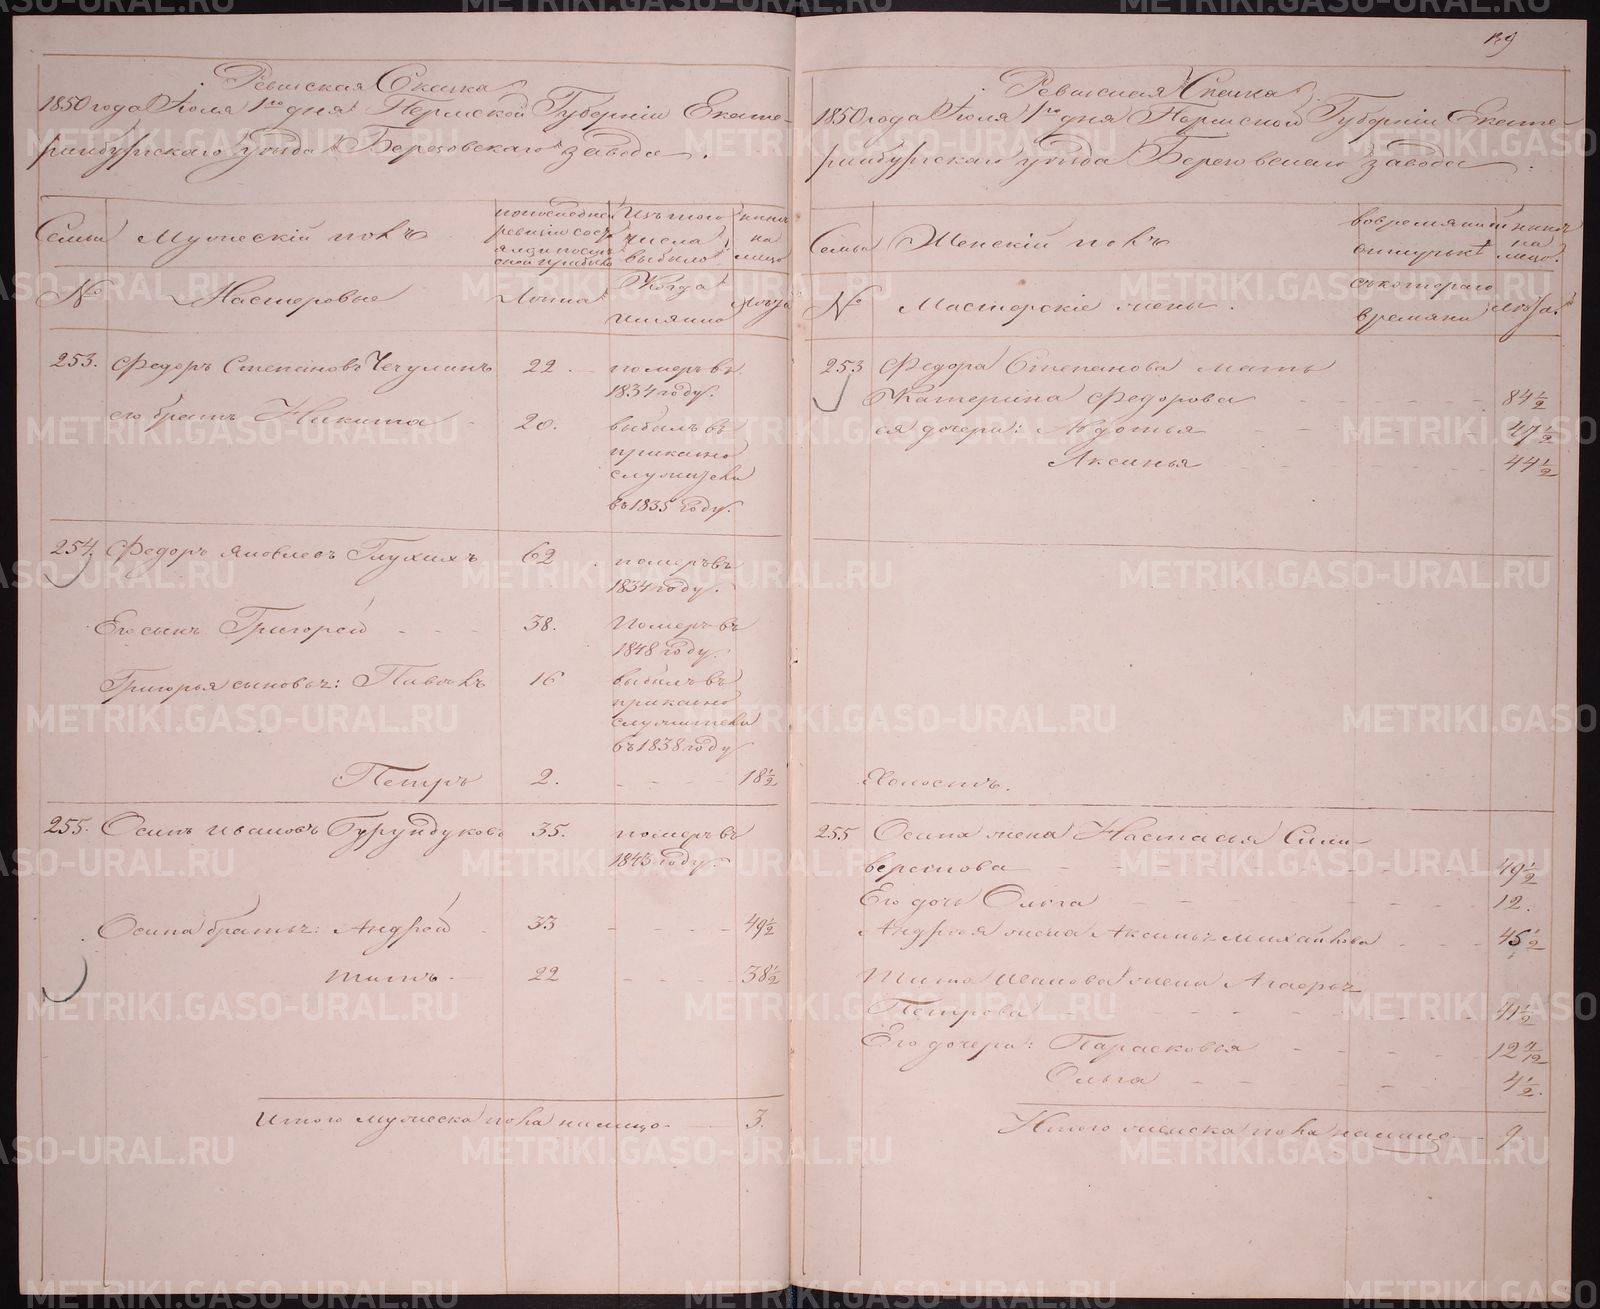 139
Ревизская Сказка
1850 года Іюля 1го дня Пермской Губерніи Екате-
ринбургскаго уѣзда Березовскаго завода.
Семьи
Мужескій полъ
по последней
ревизіи сос-
Изъ того
числа
выбыло
нынѣ
на
лицо
№
Мастеровые
Лѣта
Когда
имянно
Лѣта
253. Федоръ Степановъ Чечулинъ 22 померъ въ
1834 году.
его братъ Никита 20. выбылъ въ
приказно
служители
въ 1835 году.
254. Федоръ Яковлевъ Глухихъ 62 померъ въ
1834 году.
Его сынъ Григорей 38. Померъ въ
1848 году.
Григорья сыновья: Павелъ 16 выбылъ въ
приказно
служители
въ 1838 году
Петръ 2. 18 ½
255. Осипъ Ивановъ Бурундуковъ 35. померъ въ
1843 году.
Осипа братья: Андрей 33 49 ½
Титъ 22 38 ½
Итого мужеска пола налицо 3.
Ревизская Сказка
1850 года Іюля 1го дня Пермской Губерніи Екате-
ринбургскаго уѣзда Березовскаго завода
Семьи
Женскій полъ
во времянной
отлучкѣ
нынѣ
на
лицо
№
Мастерскіе жены.
съ котораго
времяни
Лѣта
253 Федора Степанова мать
Катерина Федорова 84 ½
ея дочери: Авдотья 47 ½
Аксинья 44 ½
Холостъ.
255 Осипа жена Настасья Сили-
верстова 49 ½
Его дочь Ольга 12.
Андрея жена Аксинья Михайлова 45 ½
Тита Иванова жена Агафья
Петрова 41 ½
Его дочери: Парасковья 12 7/12
Ольга 4 ½.
Итого женска пола налицо 9
METRIKI.GASO-URAL.RU